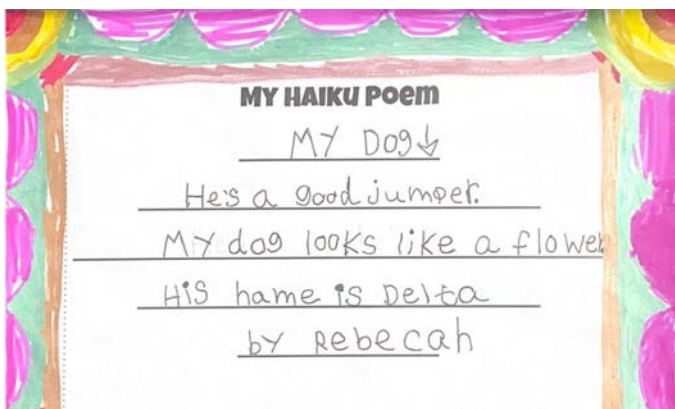 MY HAIKU POEM
MY DOg↓
He's a good jumper.
MY dog looks like a flower
HiS name is Delta
by Rebecah